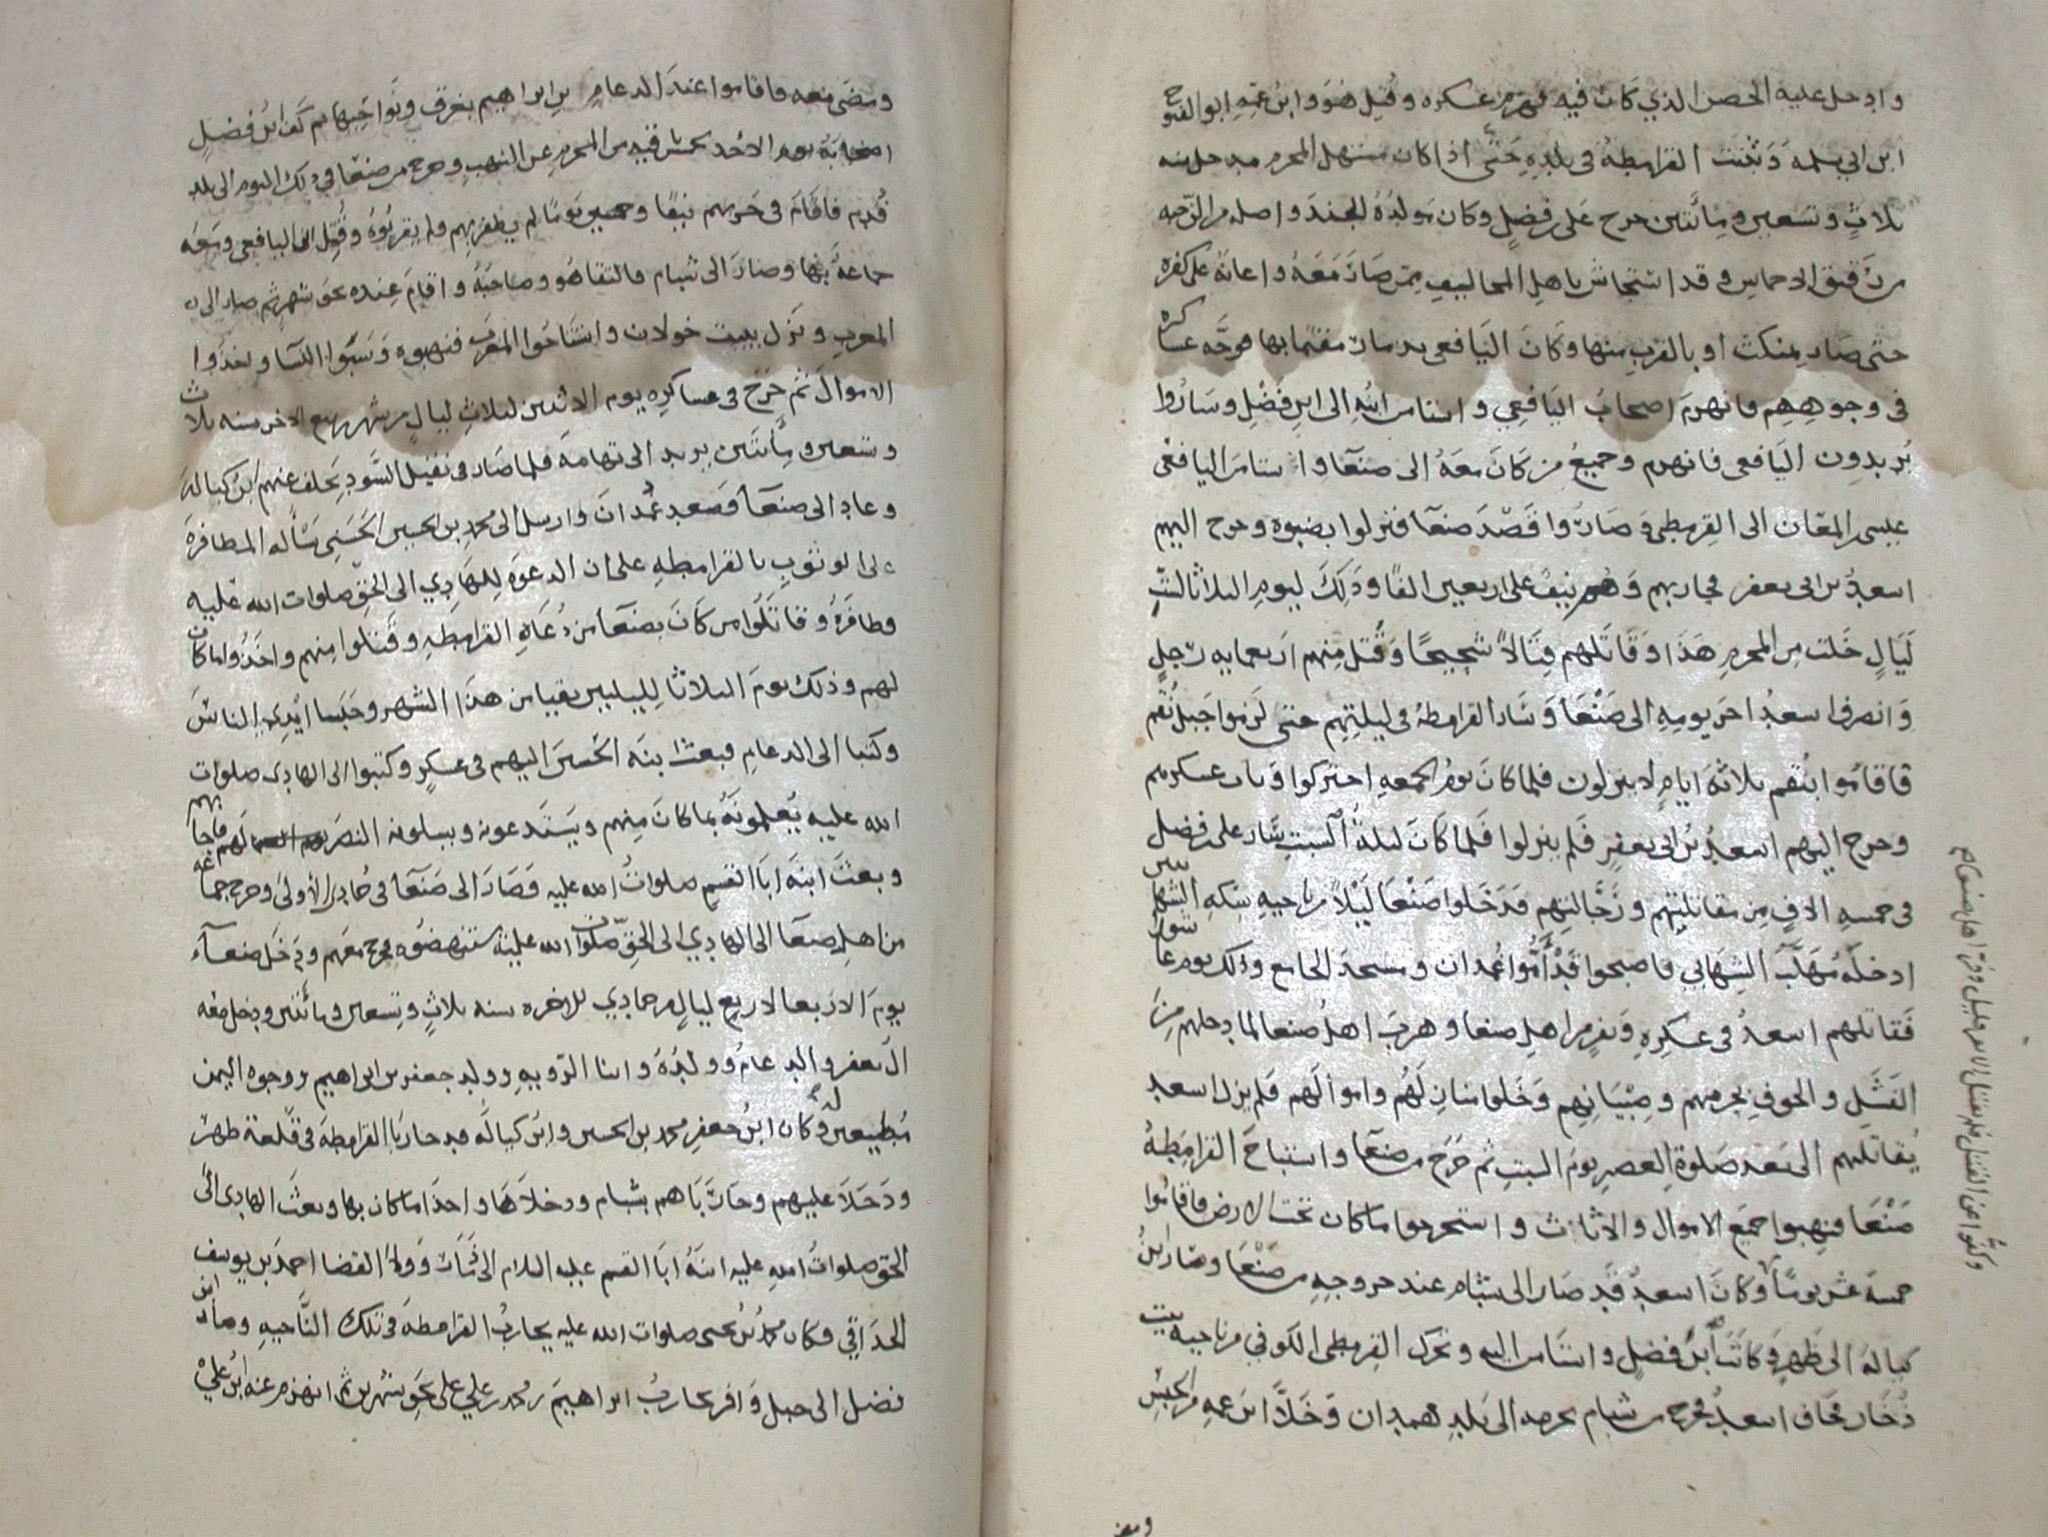 وادخل عليه الحصن الذي كان فيه فهزم عسكره وقُتل هو وابن عمه ابو الفتوح
ابن ابي سلمه وثبتت القرامطة في بلده حتى اذا كان مستهل المحرم مدخل سنه
ثلاثٍ وتسعين ومأتين خرج على بن فضلٍ وكان مولدُهُ الجند واصله من
حتى صار بمنكث او بالقرب منها وكان اليافعي بذمار مقيمًا بها فوجَّه عساكره
في وجوههم فانهزم اصحاب اليافعي واستامن ابنه الى ابن فضلٍ وساروا
يُريدون اليافعي فانهزم وجميعُ من كان معه الى صنعا واستامن اليافعى
عيسى المعان الى القرمطي وصاروا قصد صنعا فنزلوا بضبوه وخرج اليهم
اسعدُ بن ابى يعفر فحاربهم وهم نيف على اربعين الفًا وذلك ليوم الثلاثا لستِّ
ليالٍ خلت من المحرم هذا وقاتلهم قتالاً شحيحًا وقُتل منهم اربعمايه رجلٍ
وانصرف اسعدُ اخر يومه الى صنعا وسار القرامطة في ليلتهم حتى لزموا جبل نُقم
فاقاموا بنُقم ثلاثة ايامٍ لا ينزلون فلما كان يوم الجمعه احتركوا وبات عسكرهم
وخرج اليهم اسعدُ بن ابي يعفرٍ فلم ينزلوا فلما كان ليلةُ السبتِ سار على بن فضل
في خمسه الافٍ من مقاتليهم ورَجَّالتهم فدخلوا صنعا ليلاً من ناحيه سكه الشهابيين
ادخله مُهلَّب الشهابي فاصبحوا قد أَمُّوا غمدان ومسجد الجامع وذلك يوم عاشورا
فقاتلهم اسعدُ في عسكرِهِ ونفرٍ من اهل صنعا وهرب اهلُ صنعا لما دخلهم مِنَ
الفشل والخوفِ بحرمهم وصبيانهم وخلوا منازلهم واموالهم فلم يزل اسعد
يُقاتلهم الى بعد صلوة العصر يوم السبتِ ثم خرج من صنعا واستباح القرامطة
صنعا فنهبوا جميع الاموال والاثاث واستخرجوا ما كان تحت الارض فاقاموا
خمسة عشر يومًا وكان اسعدُ قد صار الى شبام عند خروجه من صنعا وصار ابنُ
كياله الى ظهر وكاتب ابن فضلٍ واستامن اليه وتحرك القرمطى الكوفي من ناحيه بيت
ذُخار فخاف اسعدُ فخرج من شبام بحرمه الى بلد همدان وخلَّا ابن عمه من الحبس
ومضى
وكفُّوا عن القتل فلم يقتل الا نفر قليل وفر اهل صنعا
ومضى معه فاقاموا عند الدعام بن ابراهيم بغرق ونواحيها ثم كف ابن فضلٍ
اصحابه يوم الاحد بقيه من المحرم عن النهب وخرج من صنعا في ذلك اليوم الى بلد
قُدم فاقام في حربهم نيفًا وخمسين يومًا لم يظفر بهم ولم يقربوه وقُتل اليافعي ومعه
جماعةٌ بها وصار الى شبام فالتقا هو وصاحبُهُ واقام عنده نحو شهرٍ ثم صار الى
المغرب ونزل ببيت خولان واستباحُوا المغرب فنهبوه وسَبَوا النسا واخذوا
الاموال ثم خرج في عساكره يوم الاثنين لثلاث ليالٍ من شهر ربيع الاخر سنه ثلاث
وتسعين ومأتين يريد الى تهامة فلما صار في نقيل السَّود تخلف عنهم ابن كياله
وعاد الى صنعا فصعد غُمدان وارسل الى محمد بن الحسين الحسني يسأله المظافرة
على الوثوبِ بالقرامطهِ على ان الدعوة للهادي الى الحق صلوات الله عليه
فظافرهُ وقاتلُوا من كان بصنعا من دُعاه القرامطه وقتلوا منهم واخذوا ما كان
لهم وذلك يوم الثلاثا لليلتين بقيا من هذا الشهر وحبسا ايدي الناس
وكتبا الى الدعام فبعث ابنه الحسن اليهم في عسكرٍ وكتبوا الى الهادي صلوات
الله عليه يُعلمونهُ بما كان منهم ويستدعونه ويسلونه النصر لهم فاجابهم
وبعث ابنه ابا القسم صلواتُ الله عليه فصار الى صنعا في جمادى الأولى وخرج جماعه
من اهل صنعا الى الهادي الى الحقِّ صلوات الله عليه يستنهضُوه فخرج معهم ودخل صنعآء
يوم الاربعا لاربع ليالٍ من جمادي الاخره سنه ثلاثٍ وتسعين ومائتين ودخل معه
ال يعفر والدعامُ وولدُهُ وابنا الرويه وولد جعفر بن ابراهيم ووجوه اليمن
مُطيعين له وكان ابنُ جعفر محمد بن الحسين وابن كياله قد حاربا القرامطه في قلعة ظهر
ودخلا عليهم وحاربَاهم بشبام ودخلاها واخذا ما كان بها وبعث الهادي الى
الحق صلواتُ الله عليه ابنهُ ابا القسم عليه السلام الى ووليَّ القضا احمد بن يوسف
الحداقي فكان محمدُ بن يحيى صلوات الله عليه يحاربُ القرامطه في تلك النَّاحيهِ وصار ابن
فضل الى جبل يحاربُ ابراهيم بن علي على نحو شهرين ثم انهزم عنه ابنُ عليٍّ